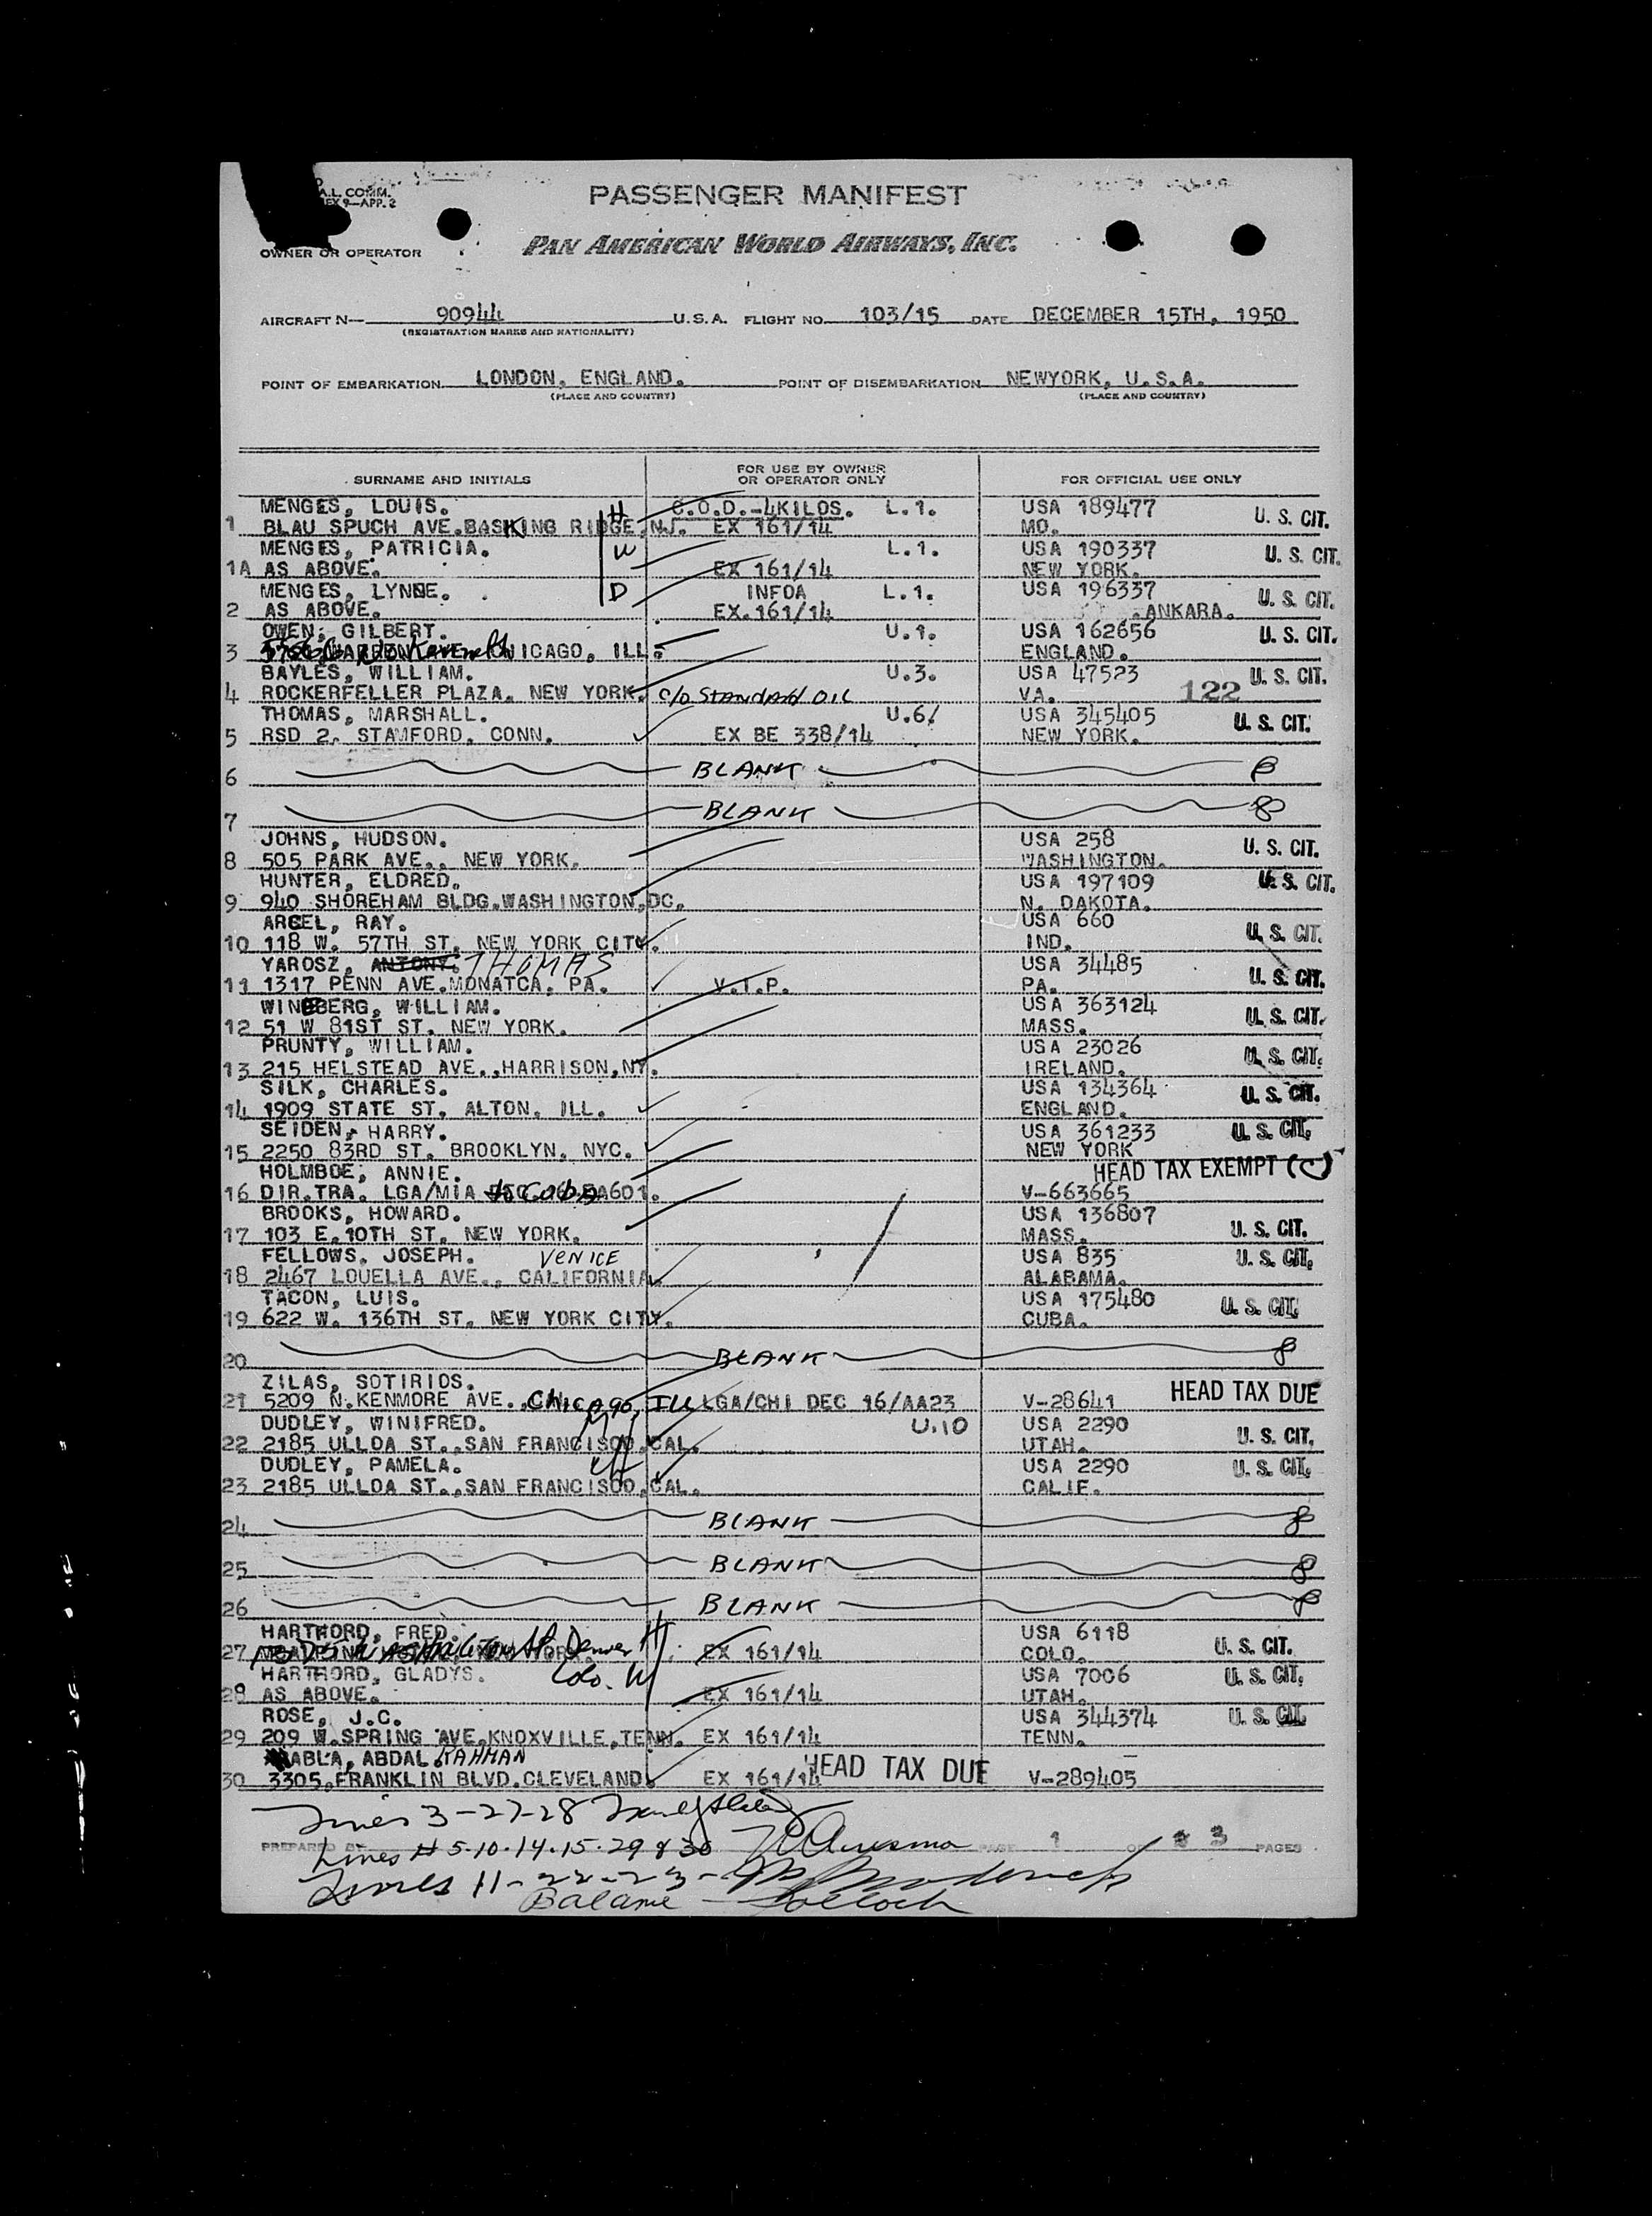 A.L. COMM.
EX 9—APP. 2
PASSENGER MANIFEST
OWNER OR OPERATOR
PAN AMERICAN WORLD AIRWAYS, INC.
AIRCRAFT N— 90944 U.S.A. FLIGHT NO. 103/15 DATE DECEMBER 15TH, 1950
(REGISTRATION MARKS AND NATIONALITY)
POINT OF EMBARKATION LONDON, ENGLAND. POINT OF DISEMBARKATION NEWYORK, U.S.A.
(PLACE AND COUNTRY) (PLACE AND COUNTRY)
SURNAME AND INITIALS FOR USE BY OWNER OR OPERATOR ONLY FOR OFFICIAL USE ONLY
MENGES, LOUIS. H C.O.D.-4KILOS. L.1. USA 189477 U. S. CIT.
1 BLAU SPUCH AVE.BASKING RIDGE,NJ. EX 161/14 MO.
MENGES, PATRICIA. W L.1. USA 190337 U. S. CIT.
1A AS ABOVE. EX 161/14 NEW YORK.
MENGES, LYNNE. D INFOA L.1. USA 196337 U. S. CIT.
2 AS ABOVE. EX.161/14 ANKARA.
OWEN, GILBERT. U.1. USA 162656 U. S. CIT.
3 CHICAGO, ILL. ENGLAND.
BAYLES, WILLIAM. U.3. USA 47523 U. S. CIT.
4 ROCKERFELLER PLAZA, NEW YORK. c/o STANDARD OIL VA. 122
THOMAS, MARSHALL. U.6/ USA 345405 U. S. CIT.
5 RSD 2, STAMFORD, CONN. EX BE 338/14 NEW YORK.
6 BLANK
7 BLANK
JOHNS, HUDSON. USA 258 U. S. CIT.
8 505 PARK AVE., NEW YORK. WASHINGTON.
HUNTER, ELDRED. USA 197109 U. S. CIT.
9 940 SHOREHAM BLDG.WASHINGTON,DC. N. DAKOTA.
ARCEL, RAY. USA 660 U. S. CIT.
10 118 W. 57TH ST, NEW YORK CITY. IND.
YAROSZ, ANTONY. THOMAS USA 34485 U. S. CIT.
11 1317 PENN AVE.MONATCA, PA. V.I.P. PA.
WINEBERG, WILLIAM. USA 363124 U. S. CIT.
12 51 W 81ST ST. NEW YORK. MASS.
PRUNTY, WILLIAM. USA 23026 U. S. CIT.
13 215 HELSTEAD AVE.,HARRISON,NY. IRELAND.
SILK, CHARLES. USA 134364 U. S. CIT.
14 1909 STATE ST, ALTON, ILL. ENGLAND.
SEIDEN, HARRY. USA 361233 U. S. CIT.
15 2250 83RD ST. BROOKLYN, NYC. NEW YORK
HOLMBOE, ANNIE. HEAD TAX EXEMPT (C)
16 DIR.TRA. LGA/MIA to Cuba EA601. V-663665
BROOKS, HOWARD. USA 136807
17 103 E.10TH ST, NEW YORK. MASS. U. S. CIT.
FELLOWS, JOSEPH. VENICE USA 835 U. S. CIT.
18 2467 LOUELLA AVE., CALIFORNIA. ALABAMA.
TACON, LUIS. USA 175480 U. S. CIT.
19 622 W. 136TH ST, NEW YORK CITY. CUBA.
20 BLANK
ZILAS, SOTIRIOS. HEAD TAX DUE
21 5209 N.KENMORE AVE., Chicago, ILL LGA/CHI DEC 16/AA23 V-28641
DUDLEY, WINIFRED. U.10 USA 2290 U. S. CIT.
22 2185 ULLOA ST.,SAN FRANCISCO,CAL. UTAH.
DUDLEY, PAMELA. USA 2290 U. S. CIT.
23 2185 ULLOA ST.,SAN FRANCISCO,CAL. CALIF.
24 BLANK
25 BLANK
26 BLANK
HARTFORD, FRED. H USA 6118 U. S. CIT.
27 Washington St Denver EX 161/14 COLO.
HARTFORD, GLADYS. Colo. W USA 7006 U. S. CIT.
28 AS ABOVE. EX 161/14 UTAH.
ROSE, J.C. USA 344374 U. S. CIT.
29 209 W.SPRING AVE.KNOXVILLE,TENN. EX 161/14 TENN.
ABLA, ABDAL RAHMAN HEAD TAX DUE
30 3305,FRANKLIN BLVD.CLEVELAND. EX 161/14 V-289405
Lines 3-27-28
PREPARED BY PAGE 1 OF 3 PAGES
Lines # 5-10-14-15-29 & 30
Lines 11-22-23-
Balance